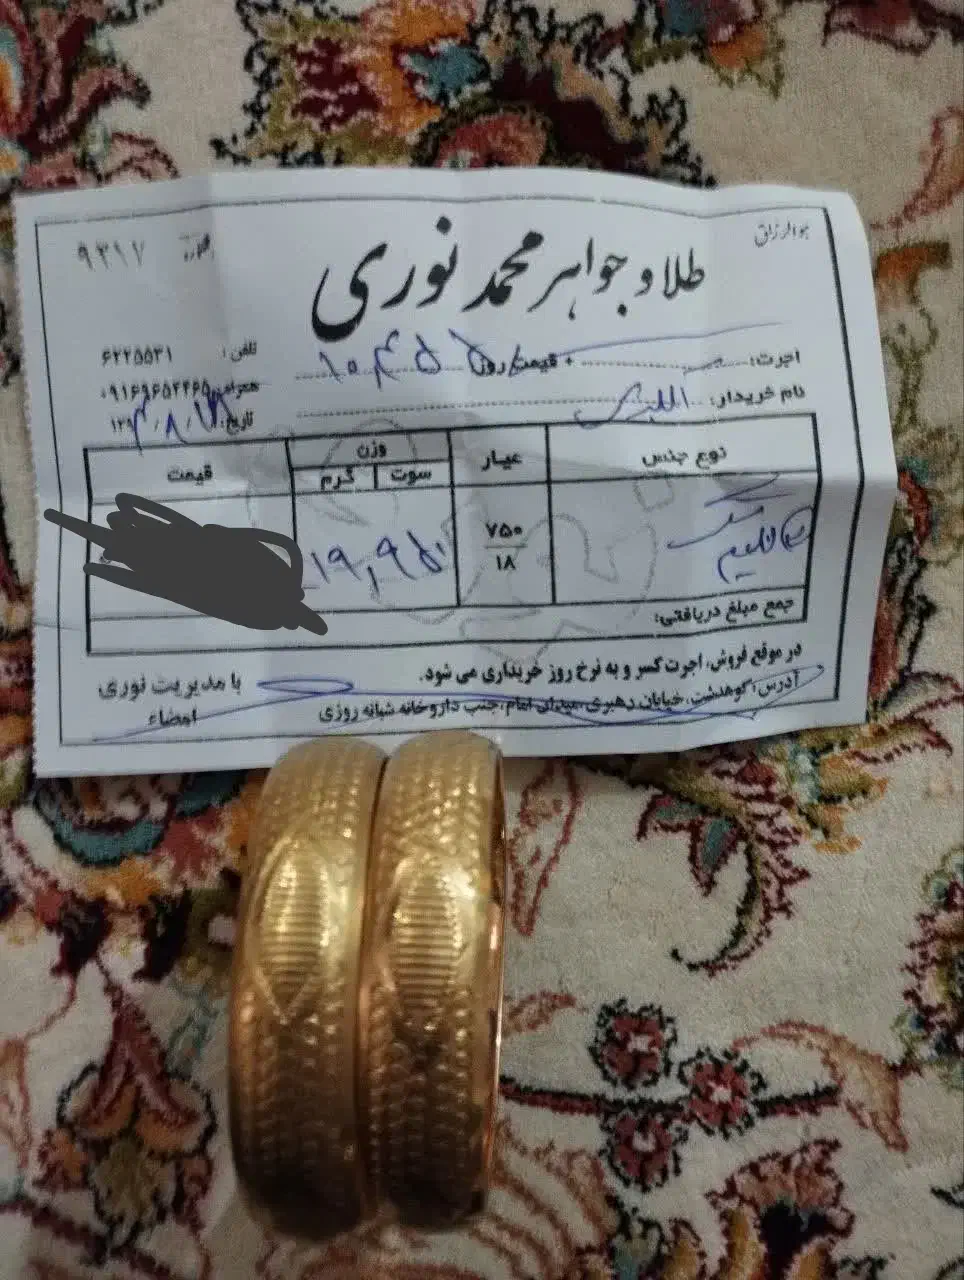 هوالرزاق
شماره ۹۳۱۷
طلا و جواهر محمد نوری
اجرت: + قیمت روز
تلفن: ۶۲۲۵۵۳۱
نام خریدار:
همراه: ۰۹۱۶۹۶۵۲۲۶۵
تاریخ: ۴/۸/
نوع جنس عیار وزن قیمت
سوت گرم
۷۵۰
۱۸ ۱۹,۹۵
جمع مبلغ دریافتی:
در موقع فروش، اجرت کسر و به نرخ روز خریداری می شود.
آدرس: کوهدشت، خیابان رهبری، میدان امام، جنب داروخانه شبانه روزی
با مدیریت نوری
امضاء